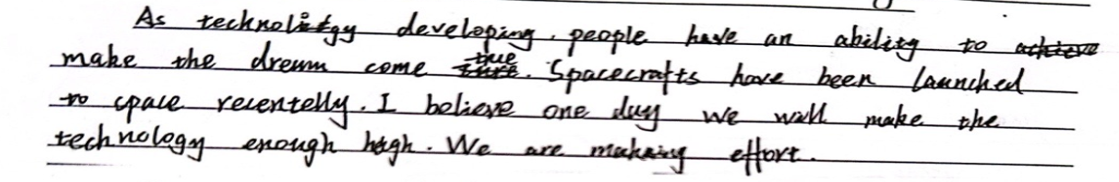 As technology developing, people have an ability to achieve
make the dream come true. Spacecrafts have been launched
to space recentelly. I believe one day we will make the
technology enough high. We are making effort.